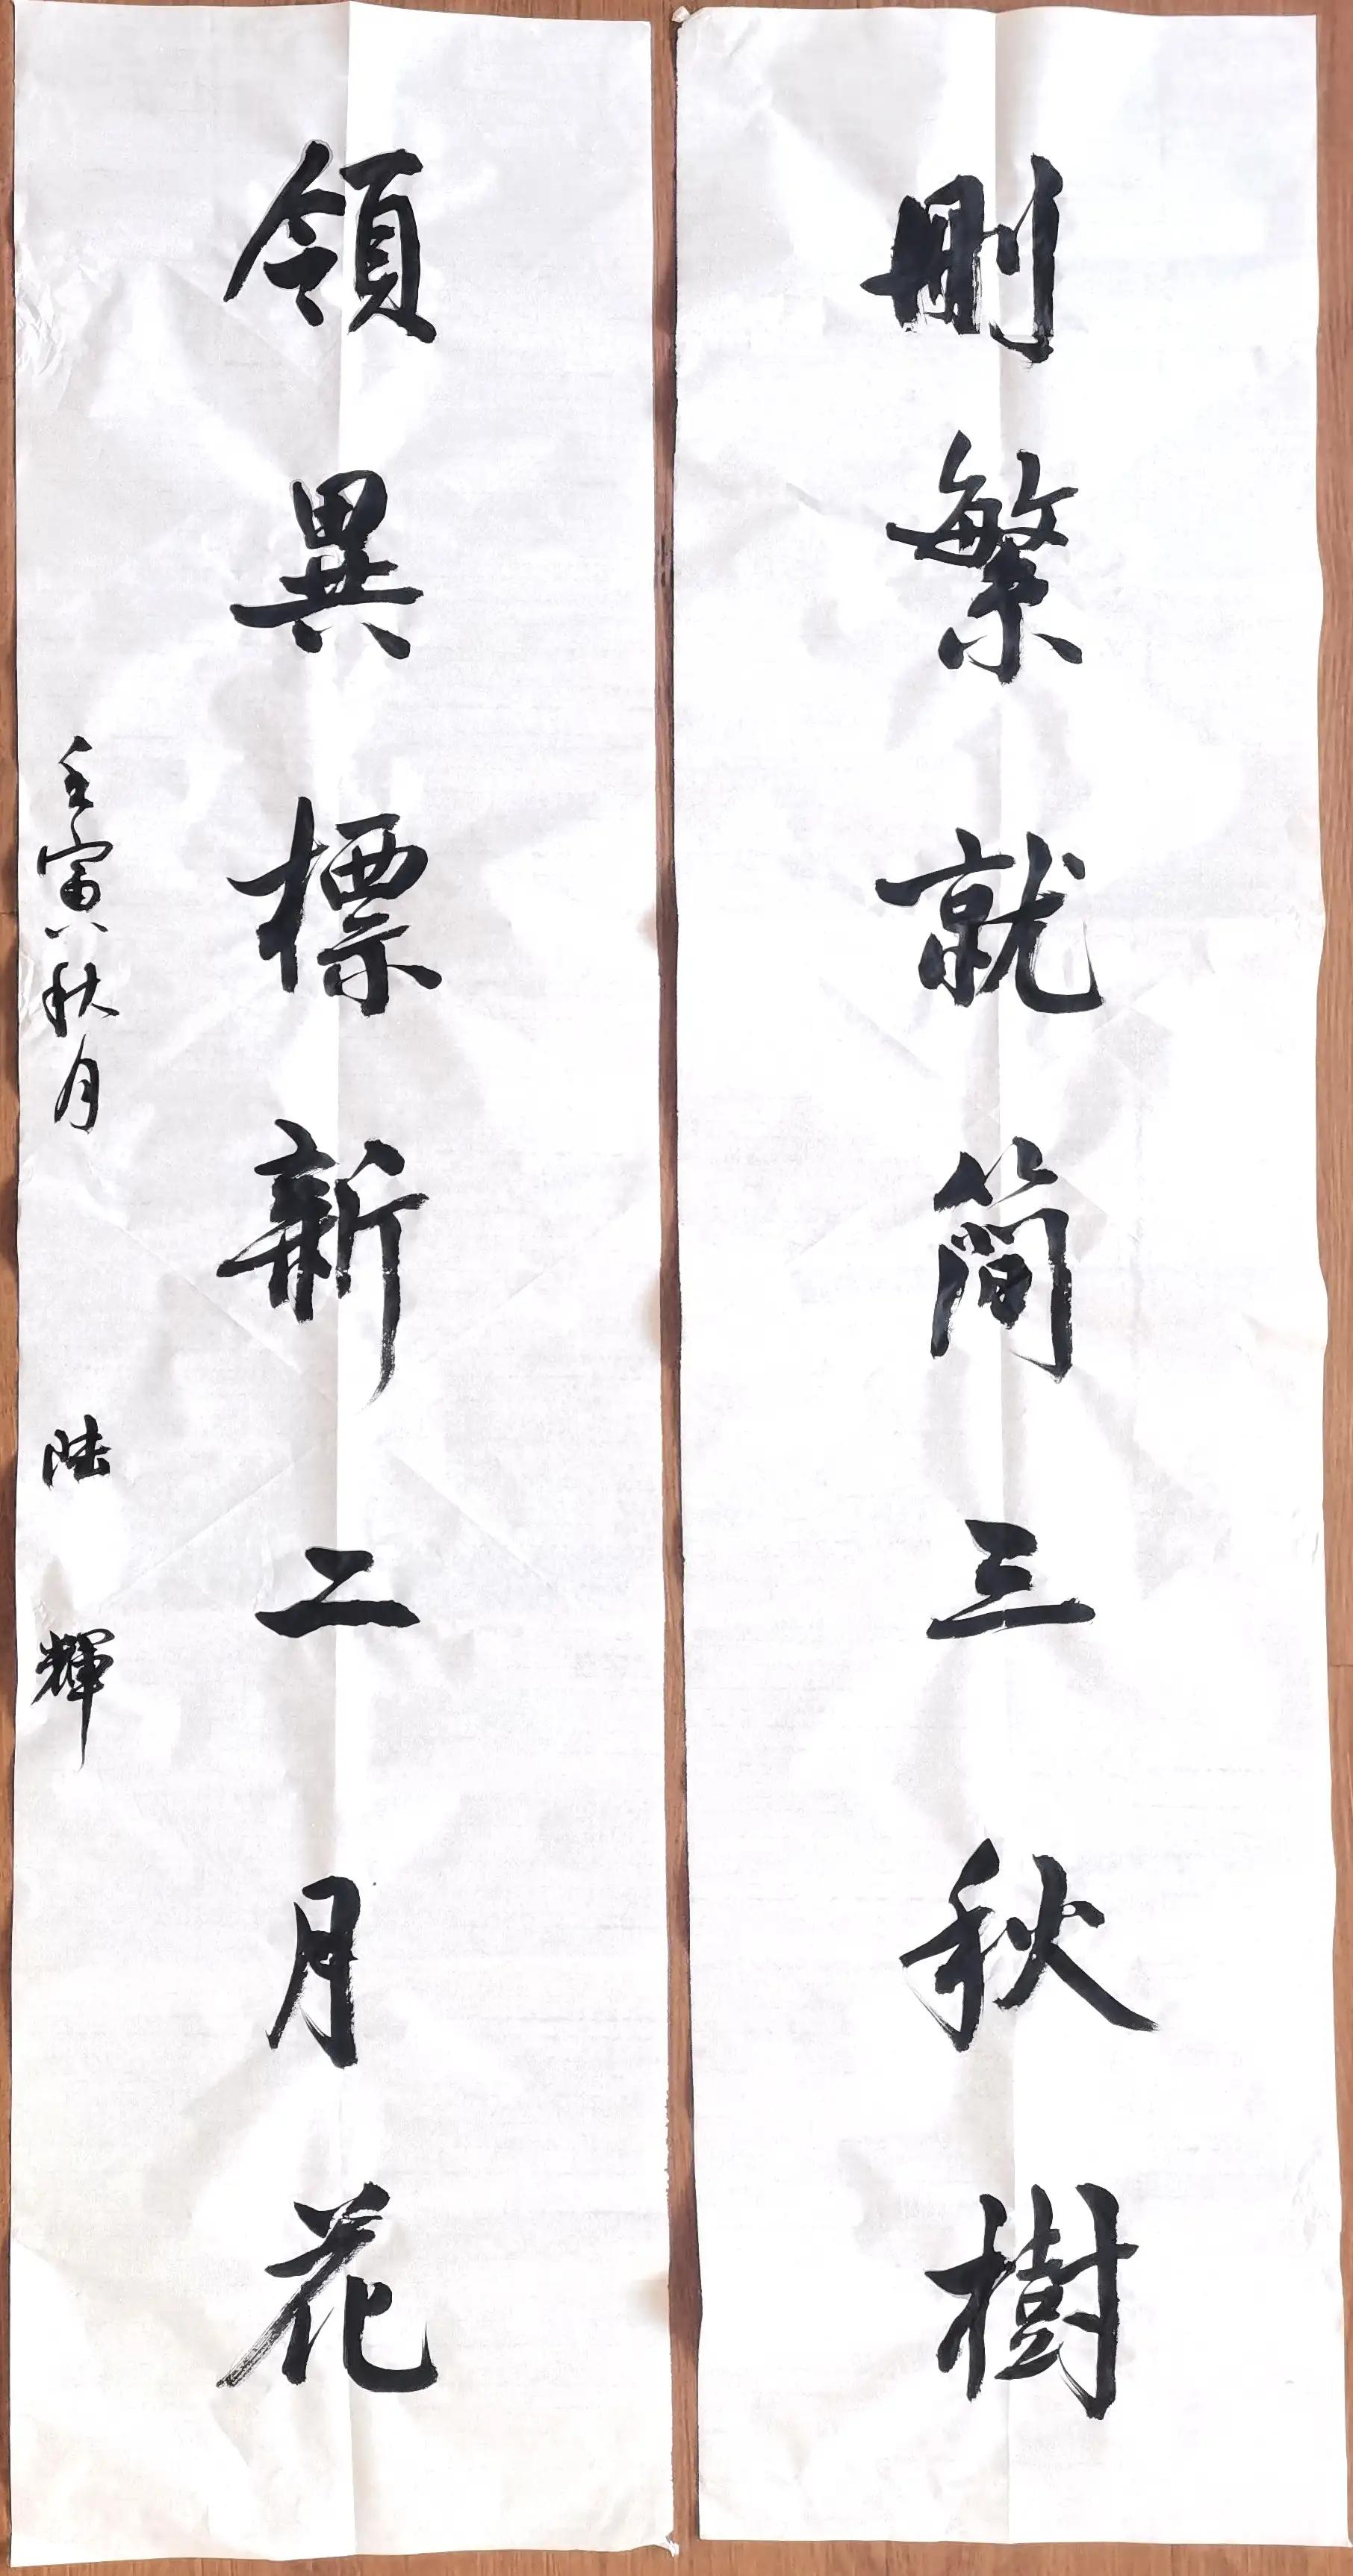 刪繁就簡三秋樹
領異標新二月花
壬寅秋月 陆輝